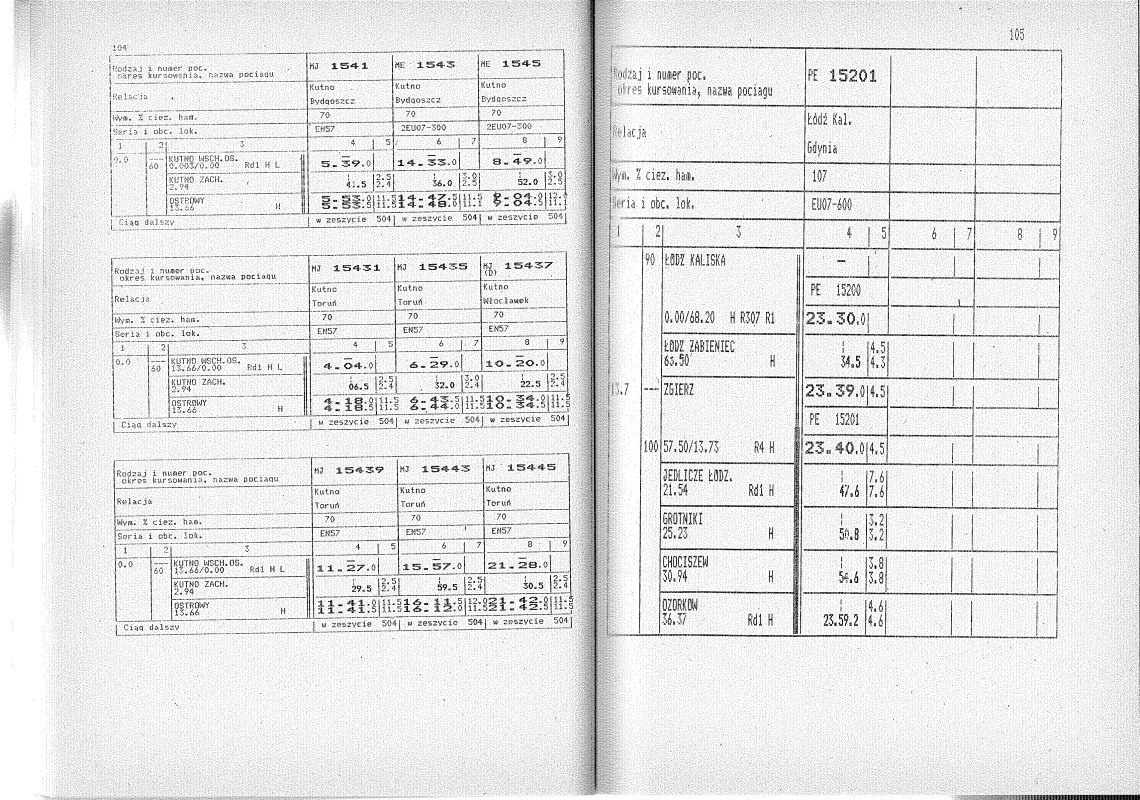 104
Rodzaj i numer poc. MJ 1541 ME 1543 ME 1545
okres kursowania, nazwa pociagu
Relacja Kutno Kutno Kutno
Bydgoszcz Bydgoszcz Bydgoszcz
Wym. % ciez. ham. 70 70 70
Seria i obc. lok. EN57 2EU07-300 2EU07-300
1 2 3 4 5 6 7 8 9
0.0 60 KUTNO WSCH.OS. — — —
0.003/0.00 Rd1 H L 5.39.0 14.33.0 8.49.0
KUTNO ZACH. 2.5 3.0 3.0
2.94 41.5 2.4 36.0 2.5 52.0 2.5
OSTROWY
13.66 H
Ciąg dalszy w zeszycie 504 w zeszycie 504 w zeszycie 504
Rodzaj i numer poc. MJ 15431 MJ 15435 MJ 15437
okres kursowania, nazwa pociagu (D)
Relacja Kutno Kutno Kutno
Toruń Toruń Włocławek
Wym. % ciez. ham. 70 70 70
Seria i obc. lok. EN57 EN57 EN57
1 2 3 4 5 6 7 8 9
0.0 60 KUTNO WSCH.OS. — — —
13.66/0.00 Rd1 H L 4.04.0 6.29.0 10.20.0
KUTNO ZACH. 2.5 3.0 2.5
2.94 06.5 2.4 32.0 2.4 22.5 2.4
OSTROWY 4.18.0 11.5 6.43.5 11.5 10.34.0 11.5
13.66 H 4.18.5 11.5 6.44.0 11.5 10.34.5 11.5
Ciąg dalszy w zeszycie 504 w zeszycie 504 w zeszycie 504
Rodzaj i numer poc. MJ 15439 MJ 15443 MJ 15445
okres kursowania, nazwa pociagu
Relacja Kutno Kutno Kutno
Toruń Toruń Toruń
Wym. % ciez. ham. 70 70 70
Seria i obc. lok. EN57 EN57 EN57
1 2 3 4 5 6 7 8 9
0.0 60 KUTNO WSCH.OS. — — —
13.66/0.00 Rd1 H L 11.27.0 15.57.0 21.28.0
KUTNO ZACH. 2.5 2.5 2.5
2.94 29.5 2.4 59.5 2.4 30.5 2.4
OSTROWY
13.66 H
Ciąg dalszy w zeszycie 504 w zeszycie 504 w zeszycie 504
105
Rodzaj i numer poc. PE 15201
okres kursowania, nazwa pociagu
Relacja Łódź Kal.
Gdynia
Wym. % ciez. ham. 107
Seria i obc. lok. EU07-600
1 2 3 4 5 6 7 8 9
90 ŁÓDZ KALISKA —
PE 15200
0.00/68.20 H R307 R1 23.30.0
ŁÓDZ ZABIENIEC 4.5
63.50 H 34.5 4.3
13.7 --- ZGIERZ 23.39.0 4.5
PE 15201
100 57.50/13.73 R4 H 23.40.0 4.5
JEDLICZE ŁÓDZ. 7.6
21.54 Rd1 H 47.6 7.6
GROTNIKI 3.2
25.23 H 50.8 3.2
CHOCISZEW 3.8
30.94 H 54.6 3.8
OZORKÓW 4.6
36.37 Rd1 H 23.59.2 4.6